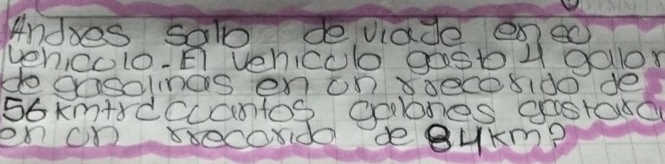 Andres salio de viade en ed
vehiculo. El vehiculo gasto 4 galon
de gasolinas en un rrecorido de
56 km+rd Ccuantos galones gastara
en un rrecorido de 84km?